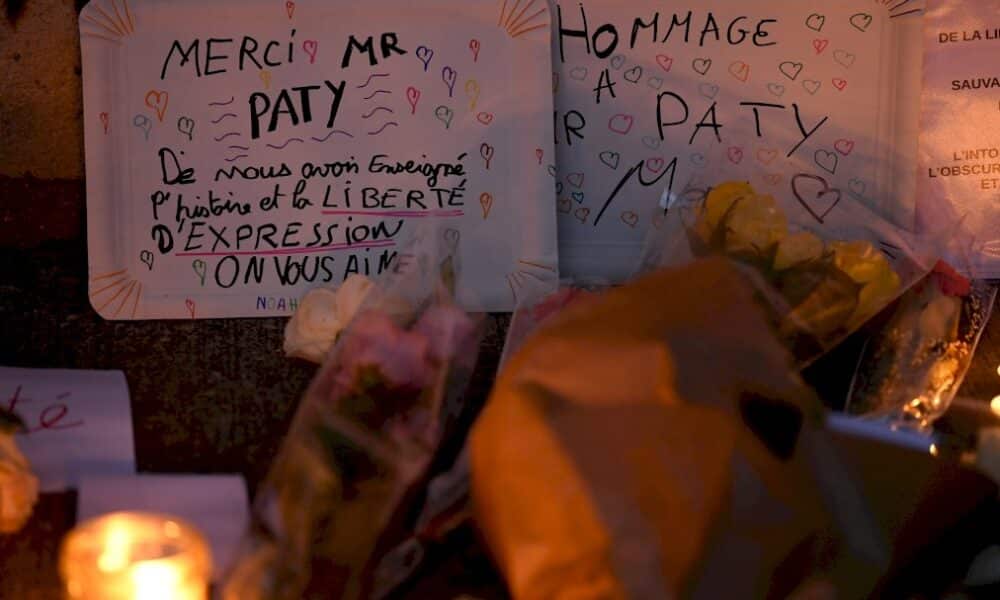 MERCi MR
PATY
De nous avoir Enseigné
l'histoire et la LIBERTÉ
D'EXPRESSION
ON VOUS AIME
NOAH
HOMMAGE
A
R PATY
M
DE LA LI
SAUVA
L'INTO
L'OBSCUR
ET
té